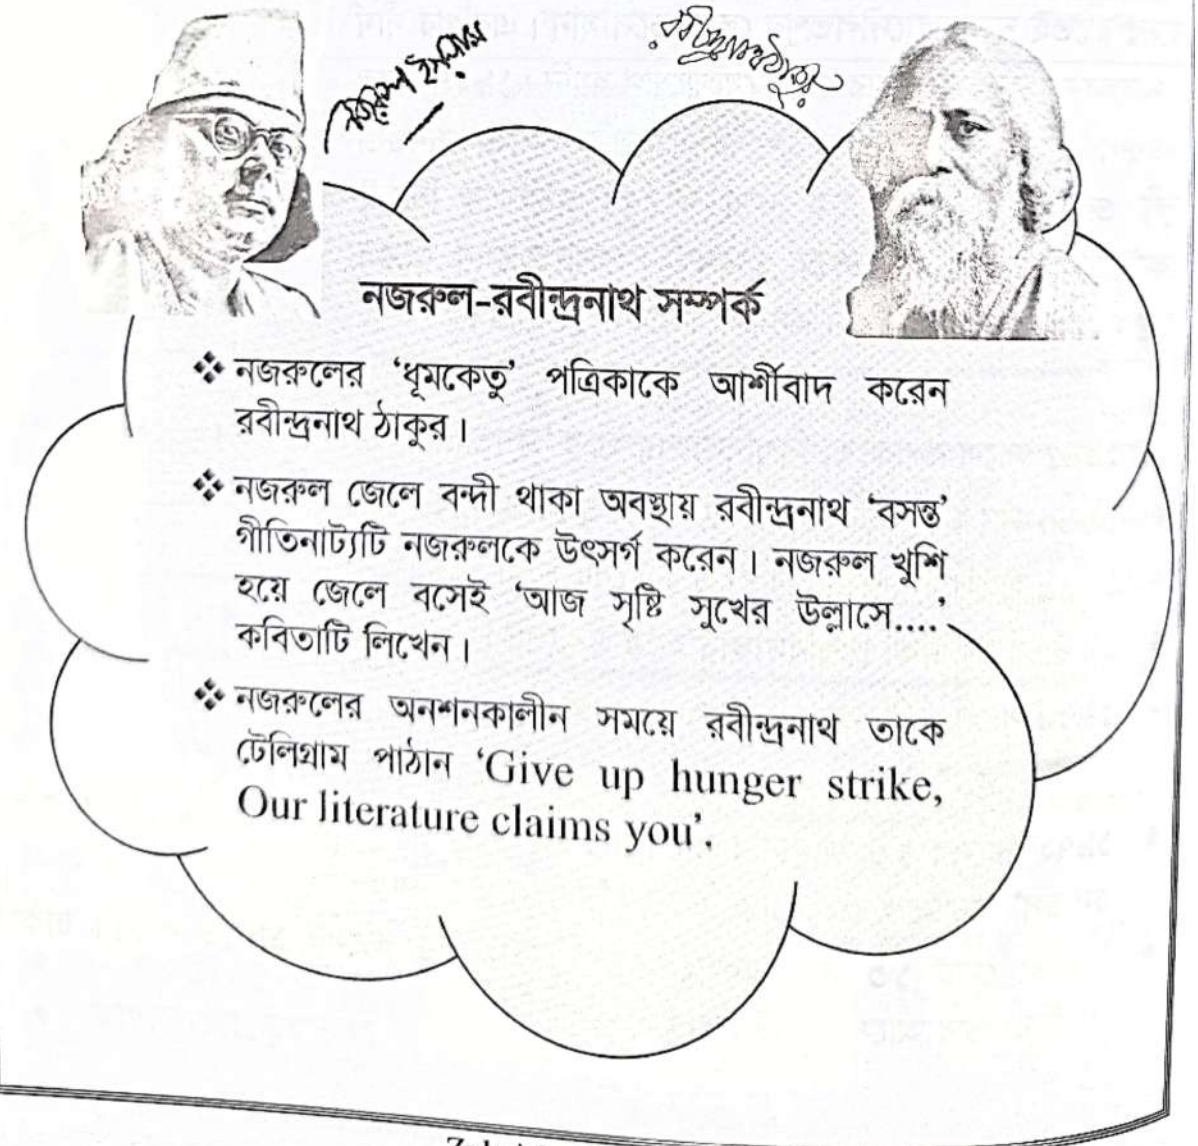 নজরুল ইসলাম
রবীন্দ্রনাথ ঠাকুর
নজরুল-রবীন্দ্রনাথ সম্পর্ক
❖ নজরুলের ‘ধূমকেতু’ পত্রিকাকে আর্শীবাদ করেন
রবীন্দ্রনাথ ঠাকুর।
❖ নজরুল জেলে বন্দী থাকা অবস্থায় রবীন্দ্রনাথ ‘বসন্ত’
গীতিনাট্যটি নজরুলকে উৎসর্গ করেন। নজরুল খুশি
হয়ে জেলে বসেই ‘আজ সৃষ্টি সুখের উল্লাসে....’
কবিতাটি লিখেন।
❖ নজরুলের অনশনকালীন সময়ে রবীন্দ্রনাথ তাকে
টেলিগ্রাম পাঠান ‘Give up hunger strike,
Our literature claims you’.